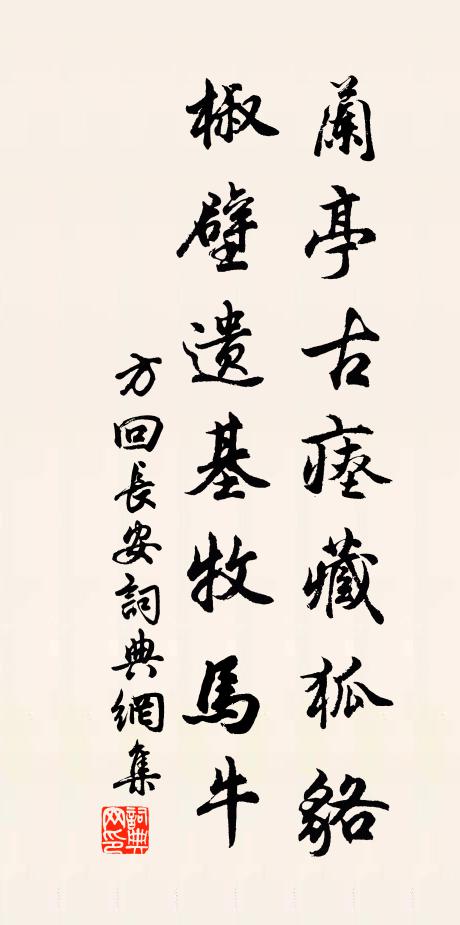 蘭亭古瘞藏狐貉
椒壁遺基牧馬牛
方回長安詞典網集
詞典網印